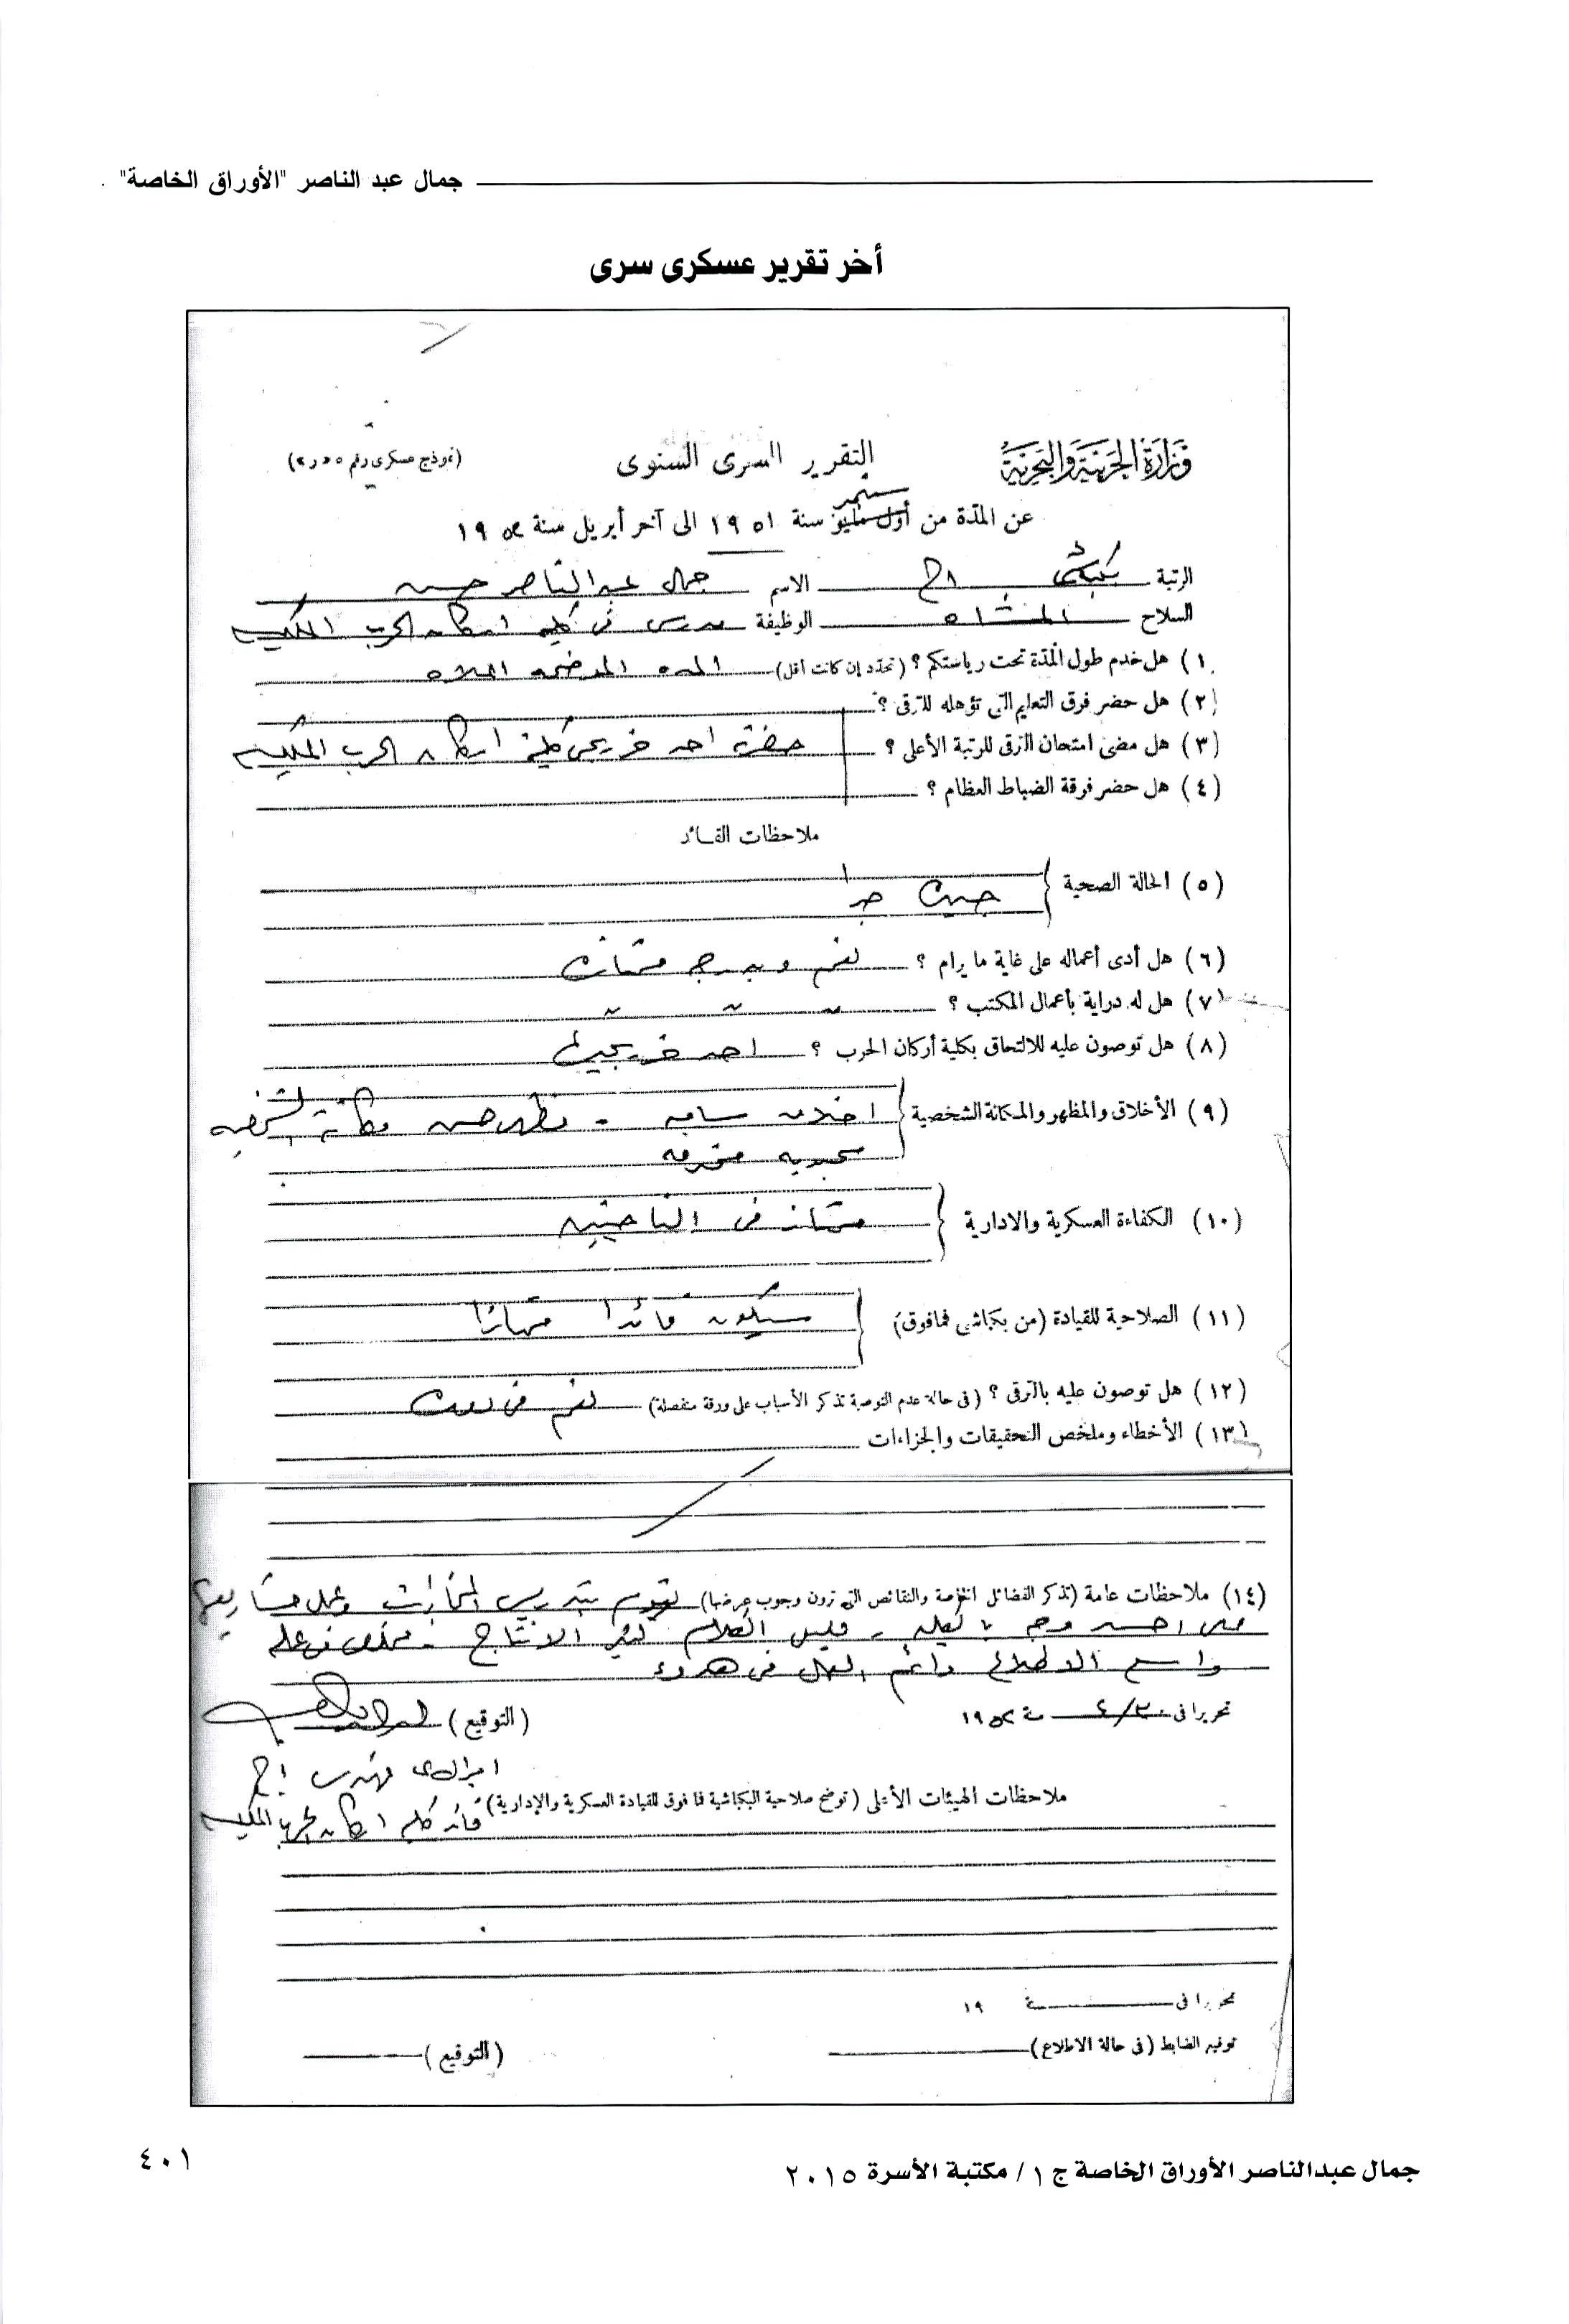 جمال عبد الناصر "الأوراق الخاصة"
أخر تقرير عسكرى سرى
وزارة الحربية والبحرية
التقرير السرى السنوى
(نموذج عسكرى رقم
سبتمبر
عن المدّة من أوّل مايو سنة ١٩٥١ الى آخر أبريل سنة ١٩٥٢
الرتبة بكباشى ا ح الاسم جمال عبد الناصر حسين
السلاح المشاه الوظيفة مدرس فى كلية اركان الحرب الملكية
(١) هل خدم طول المدّة تحت رياستكم ؟ (تحدّد إن كانت أقل) المده الموضحه اعلاه
(٢) هل حضر فرق التعليم التى تؤهله للترقى ؟
(٣) هل مضى امتحان الترقى للرتبة الأعلى ؟ حضرته احد خريجى كلية اركان الحرب الملكية
(٤) هل حضر فرقة الضباط العظام ؟
ملاحظات القائد
(٥) الحالة الصحية جيدة جدا
(٦) هل أدى أعماله على غاية ما يرام ؟ نعم وبدرجه ممتازة
(٧) هل له دراية بأعمال المكتب ؟ " " "
(٨) هل توصون عليه للالتحاق بكلية أركان الحرب ؟ احد خريجيها
(٩) الأخلاق والمظهر والمكانة الشخصية اخلاق ساميه - مظهر حسن مكانته الشخصيه
محبوبه محترمه
(١٠) الكفاءة العسكرية والادارية ممتاز فى الناحيتين
(١١) الصلاحية للقيادة (من بكباشى فمافوق) سيكون قائدا ممتازا
(١٢) هل توصون عليه بالترقى ؟ (فى حالة عدم التوصية تذكر الأسباب على ورقة منفصلة) نعم فى
(١٣) الأخطاء وملخص التحقيقات والجزاءات
(١٤) ملاحظات عامة (تذكر الفضائل الخاصة والنقائص التى ترون وجوب عرضها) يقوم بتدريس المخابرات وعمل مشاريعها
على احسن وجه بالكليه - قليل الكلام كثير الانتاج - مخلص فى عمله
واسع الاطلاع دائم العمل فى هدوء
تحريرا فى ٣٠/٤ سنة ١٩٥٢ (التوقيع)
اميرالاى مهندس ا ح
ملاحظات الهيئات الأعلى (توضح صلاحية البكباشية فما فوق للقيادة العسكرية والإدارية)
قائد كلية اركان الحرب الملكية
تحريرا فى سنة ١٩
توقيع الضابط (فى حالة الاطلاع) (التوقيع)
جمال عبدالناصر الأوراق الخاصة ج ١ / مكتبة الأسرة ٢٠١٥
٤٠١